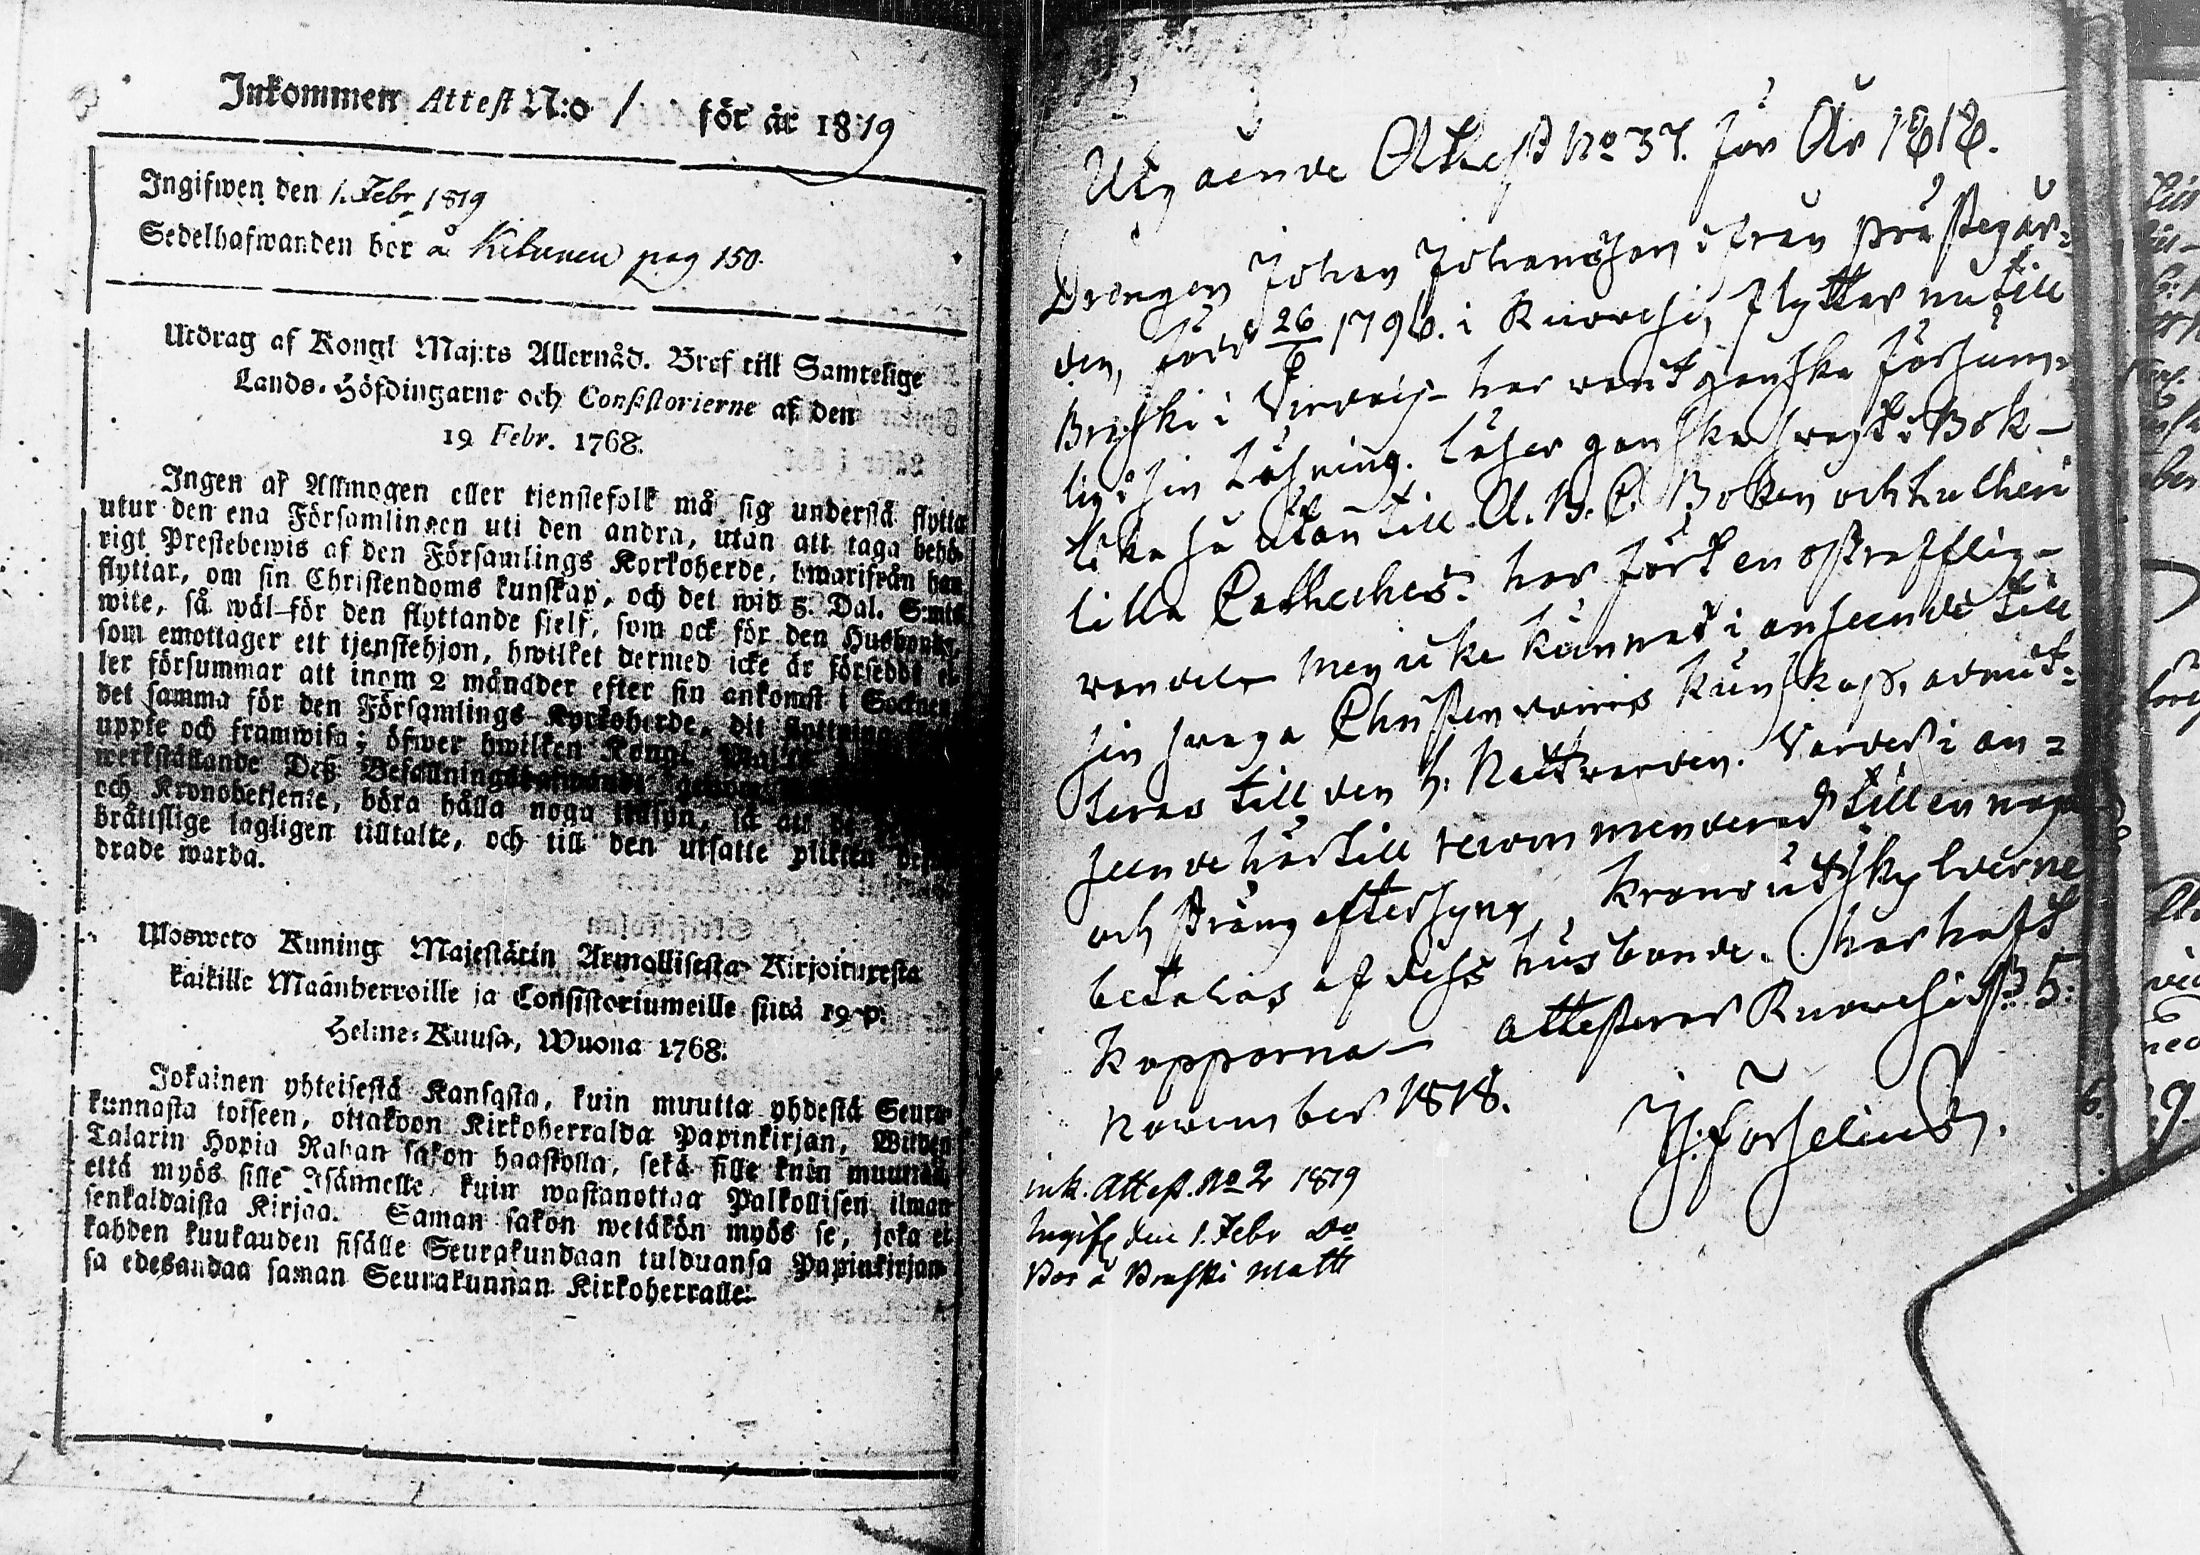 Inkommen Attest N:o 1 för år 1819
Ingifwen den 1. Febr 1819
Sedelhafwanden bor å Kitunen pag 150.
Utdrag af Kongl Maj:ts Allernåd. Bref till Samtelige
Lands-Höfdingarne och Consistorierne af den
19 Febr. 1768.
Ingen af Allmogen eller tienstefolk må sig understå flytta
utur den ena Församlingen uti den andra, utan att taga behö-
rigt Prestebewis af den Församlings Kyrkoherde, hwarifrån han
flyttar, om sin Christendoms kunskap, och det wid 5. Dal. S:mts
wite, så wäl för den flyttande sielf, som ock för den Husbonde,
som emottager ett tjenstehjon, hwilket dermed icke är försedd el-
ler försummar att inom 2 månader efter sin ankomst i Socknen,
det samma för den Församlings Kyrkoherde, dit flyttning
uppte och framwisa; öfwer hwilken Kongl Maj:ts
werkställande Deß Befallningshafwande
och Kronobetjente, böra hålla noga tillsyn, så att de
brättslige lagligen tilltalte, och till den utsatte plikten
drade warda.
Ulosweto Kuning Majestätin Armollisesta Kirjoituxesta
kaikille Maanherroille ja Consistoriumeille siitä 19 p:
Helme-Kuusa, Wuona 1768.
Jokainen yhteisestä Kansasta, kuin muutta yhdestä Seura-
kunnasta toiseen, ottakoon Kirkoherralda Papinkirjan, Wiiden
Talarin Hopia Rahan sakon haastolla, sekä sille kuin muuttaa
että myös sille Isännelle, kuin wastanottaa Palkollisen ilman
senkaldaista Kirjaa. Saman sakon wetäkön myös se, joka ei
kahden kuukauden sisälle Seurakundaan tulduansa Papinkirjan-
sa edesandaa saman Seurakunnan Kirkoherralle.
Utgående Attest No 37. för År 1818.
Drängen Johan Johansson ifrån Prästegår-
den, född 26/6 1796. i Ruovesi, flyttar nu till
Braski i Virdois har varit ganska försum-
lig i sin Läsning. Läser ganska svagt i Bok
lika så utan till A. B. C. Boken och Lutheri
lilla Catheches. har fört en ostrafflig
vandel men icke kunnat i anseende till
sin svaga Christendoms kunskap, admit-
teras till den H. Nattvarden. Vardes i an-
seende härtill recommenderad till en noga
och sträng eftersyn, Kronoutskylderne
betalas af dess husbonde. har haft
Kopporna attesterar Ruovesi d. 5.
November 1818.
H: Forselius.
ink. Attest. No 2 1819
Ingifv den 1. Febr Do
Bor å Braski Matts